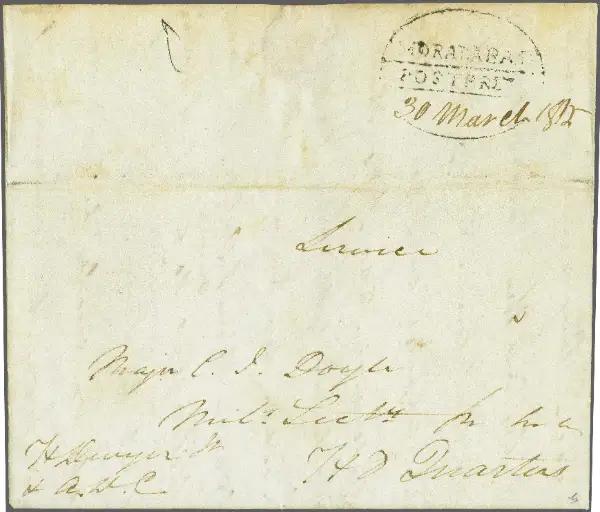 MORADABAD
POSTPAID
30 March 1815
Service
Major C. J. Doyle
Mil. Secty
Hd Quarters
& A.D.C.